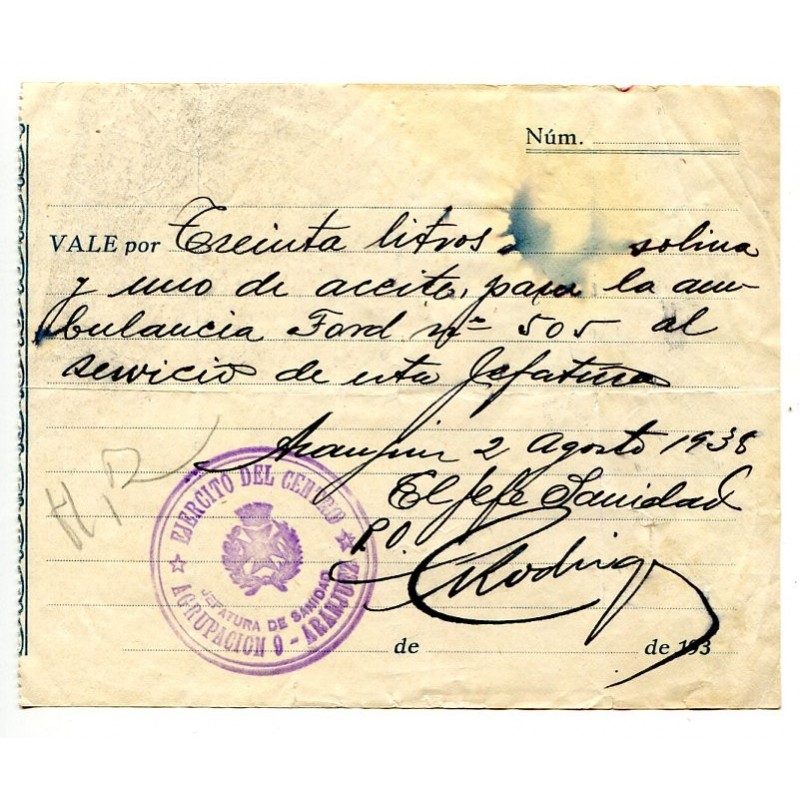 Núm.
VALE por Treinta litros solina
y uno de aceite, para la am-
bulancia Ford nº 505 al
servicio de esta Jefatura
Aranjuez 2 Agosto 1938
El Jefe Sanidad
P.O.
Rodrig
H,
EJERCITO DEL CENTRO
JEFATURA DE SANIDAD
AGRUPACION 9 - ARANJUEZ
de de 193